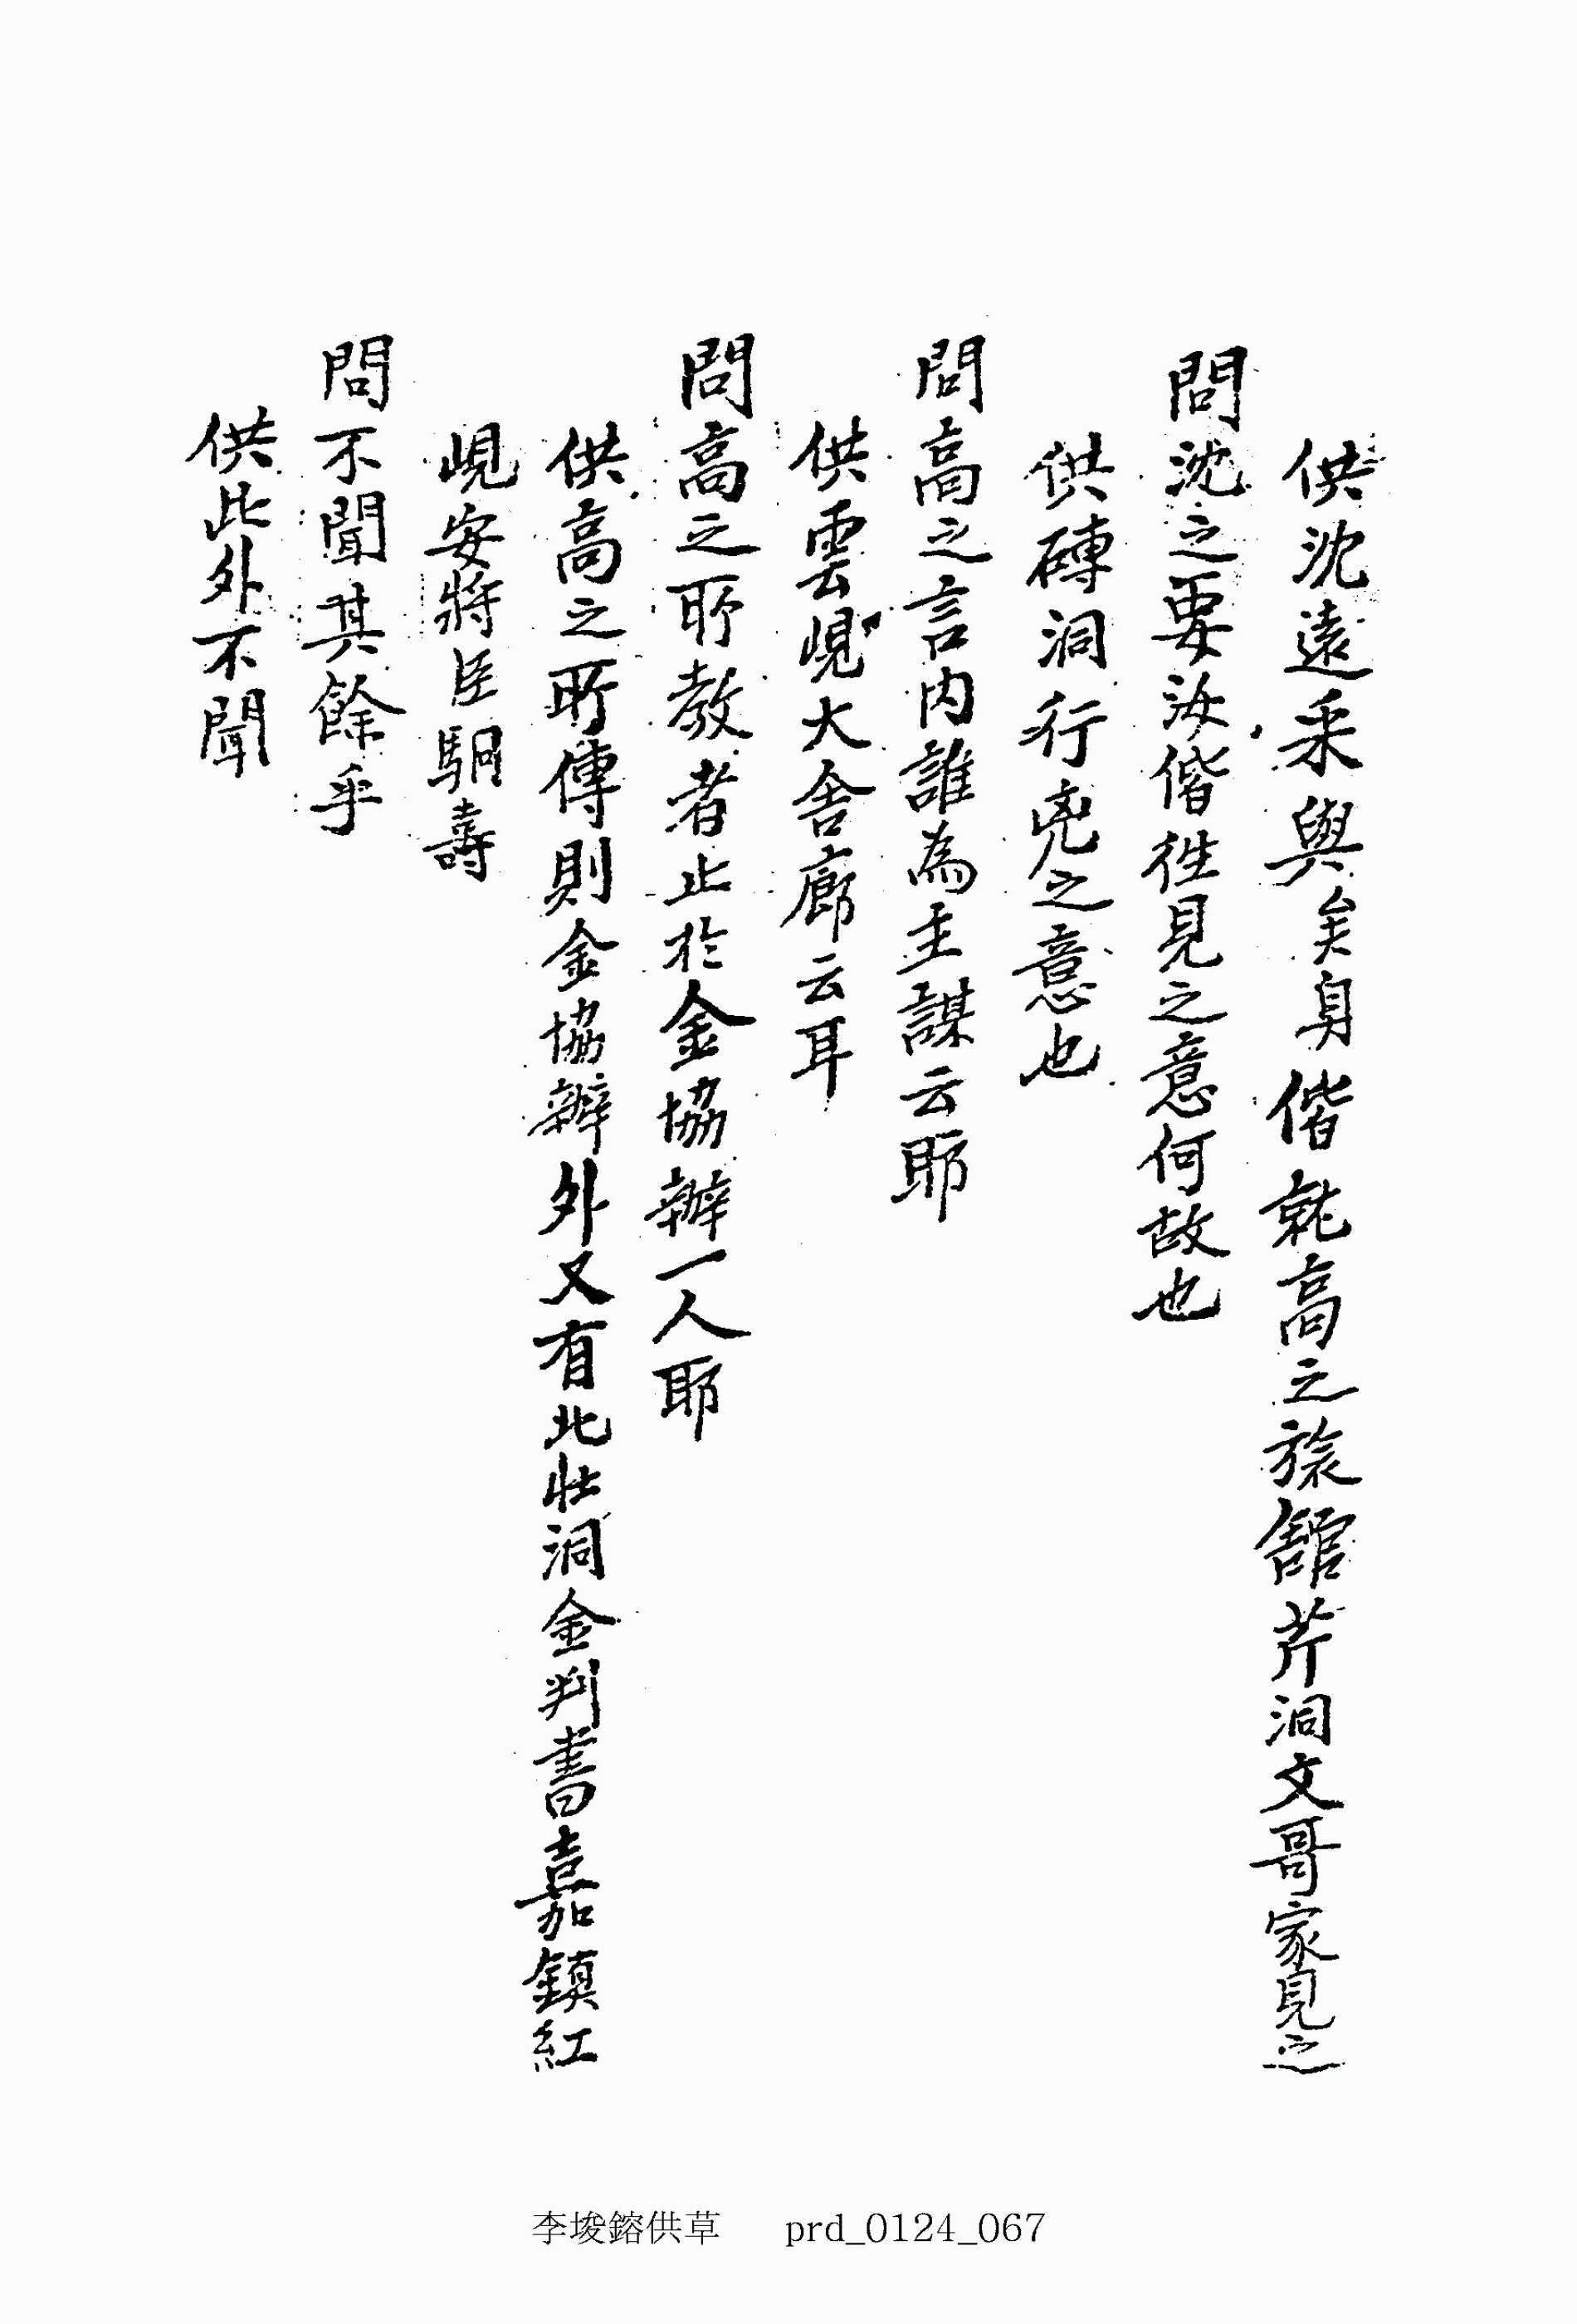 供沈遠來與矣身偕就高之旅舘芹洞文哥家見之
問沈之要汝偕往見之意何故也
供磚洞行兇之意也
問高之言内誰為主謀云耶
供雲峴大舍廊云耳
問高之所教者止於金協辦一人耶
供高之所傳則金協辦外又有北壯洞金判書嘉鎮紅
峴安將臣駉壽
問不聞其餘乎
供此外不聞
李埈鎔供草 prd_0124_067